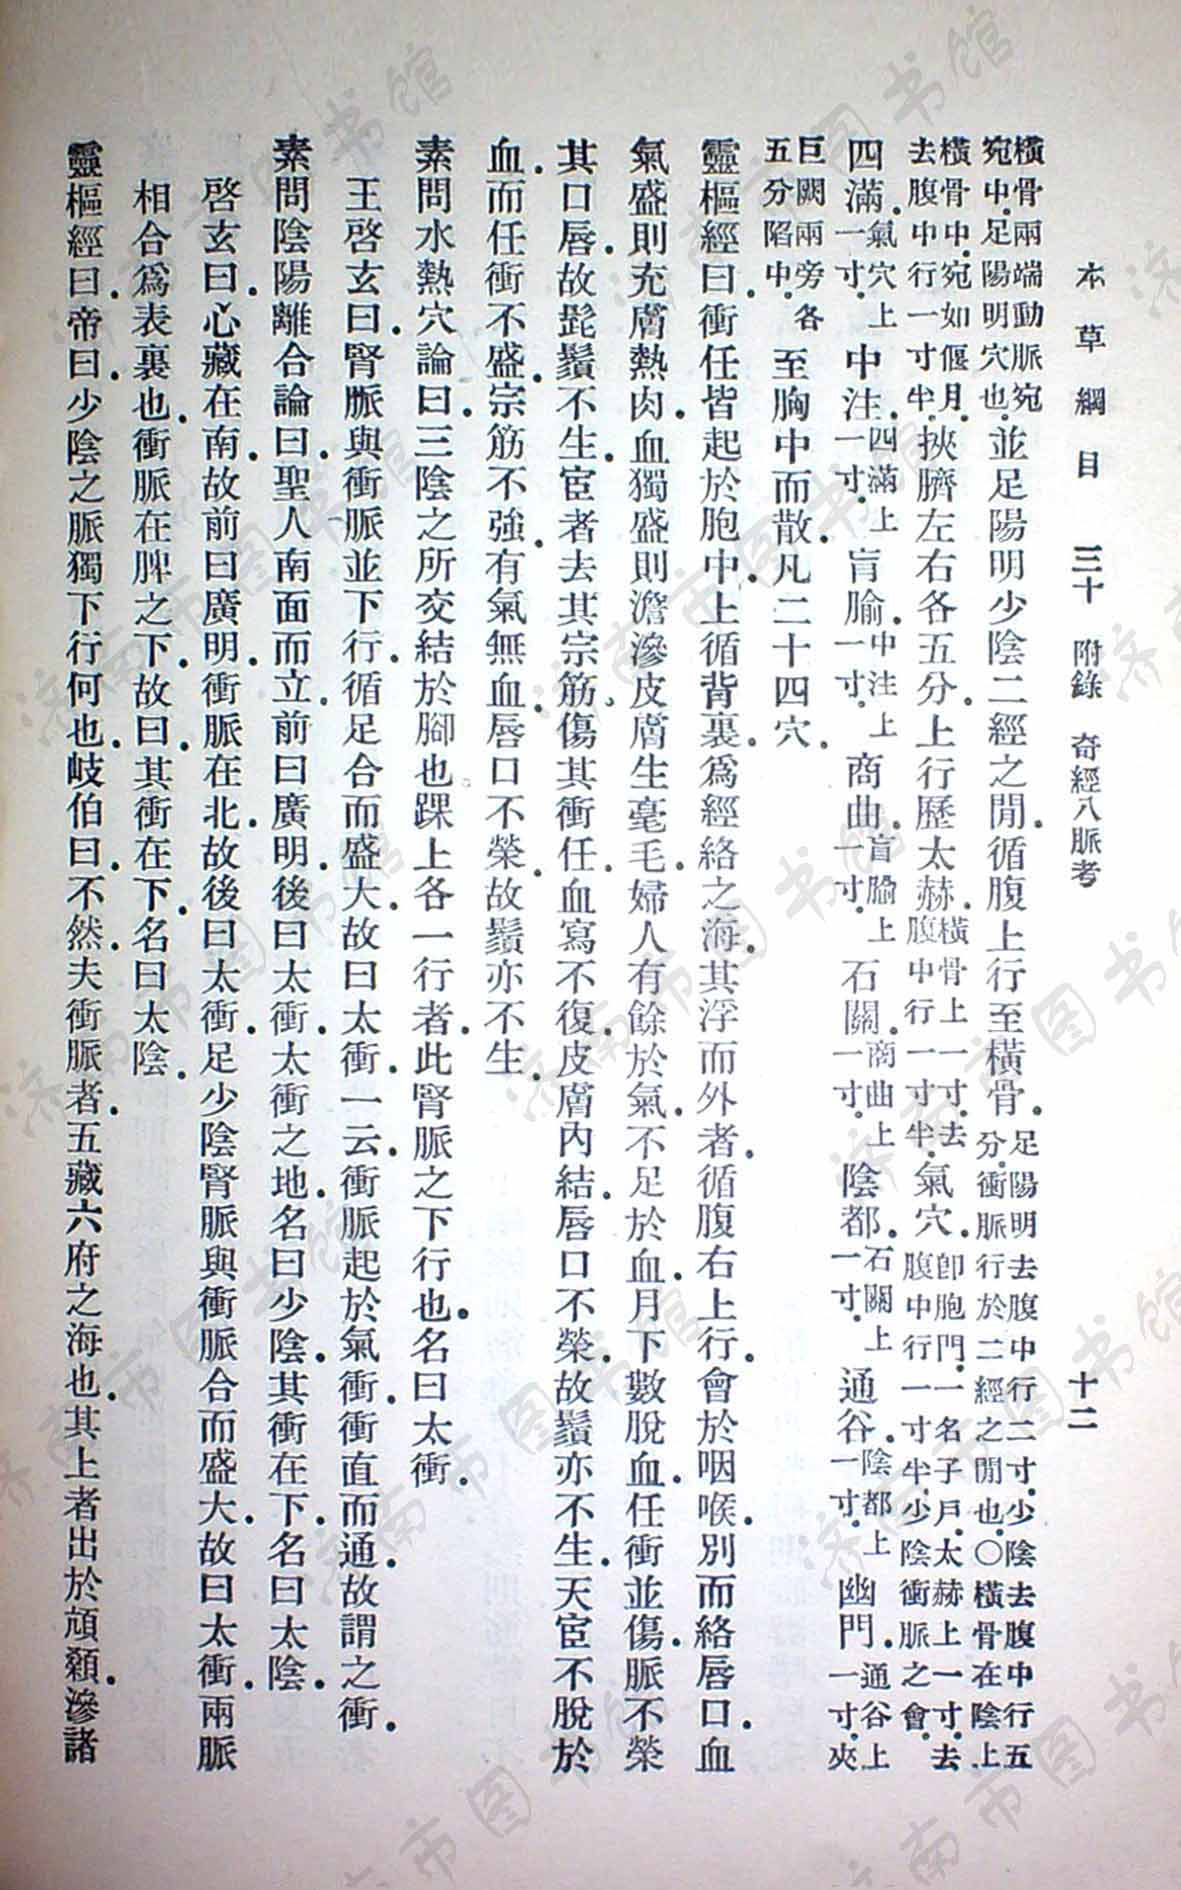 本草綱目 三十 附錄 奇經八脈考 十二
橫骨兩端動脈宛宛中。足陽明穴也。並足陽明少陰二經之閒。循腹上行至橫骨。足陽明去腹中行二寸。少陰去腹中行五分。衝脈行於二經之閒也。○橫骨在陰上
橫骨中。宛如偃月。去腹中行一寸半。挾臍左右各五分。上行歷太赫。橫骨上一寸。去腹中行一寸半。氣穴。卽胞門。一名子戶。太赫上一寸。去腹中行一寸半。少陰衝脈之會。
四滿。氣穴上一寸。中注。四滿上一寸。肓腧。中注上一寸。商曲。肓腧上一寸。石關。商曲上一寸。陰都。石關上一寸。通谷。陰都上一寸。幽門。通谷上一寸。夾
巨闕兩旁。各五分陷中。至胸中而散。凡二十四穴。
靈樞經曰。衝任皆起於胞中。上循背裏。爲經絡之海。其浮而外者。循腹右上行。會於咽喉。別而絡唇口。血
氣盛則充膚熱肉。血獨盛則澹滲皮膚生毫毛。婦人有餘於氣。不足於血。月下數脫血。任衝並傷。脈不榮
其口唇。故髭鬚不生。宦者去其宗筋。傷其衝任。血寫不復。皮膚內結。唇口不榮。故鬚亦不生。天宦不脫於
血。而任衝不盛。宗筋不強。有氣無血。唇口不榮。故鬚亦不生。
素問水熱穴論曰。三陰之所交結於腳也。踝上各一行者。此腎脈之下行也。名曰太衝。
王啓玄曰。腎脈與衝脈並下行。循足合而盛大。故曰太衝。一云衝脈起於氣衝。衝直而通。故謂之衝。
素問陰陽離合論曰。聖人南面而立。前曰廣明。後曰太衝。太衝之地。名曰少陰。其衝在下。名曰太陰。
啓玄曰。心藏在南。故前曰廣明。衝脈在北。故後曰太衝。足少陰腎脈與衝脈合而盛大。故曰太衝。兩脈
相合爲表裏也。衝脈在脾之下。故曰。其衝在下。名曰太陰。
靈樞經曰。帝曰。少陰之脈獨下行何也。岐伯曰。不然。夫衝脈者。五藏六府之海也。其上者出於頏顙。滲諸
济南市图书馆